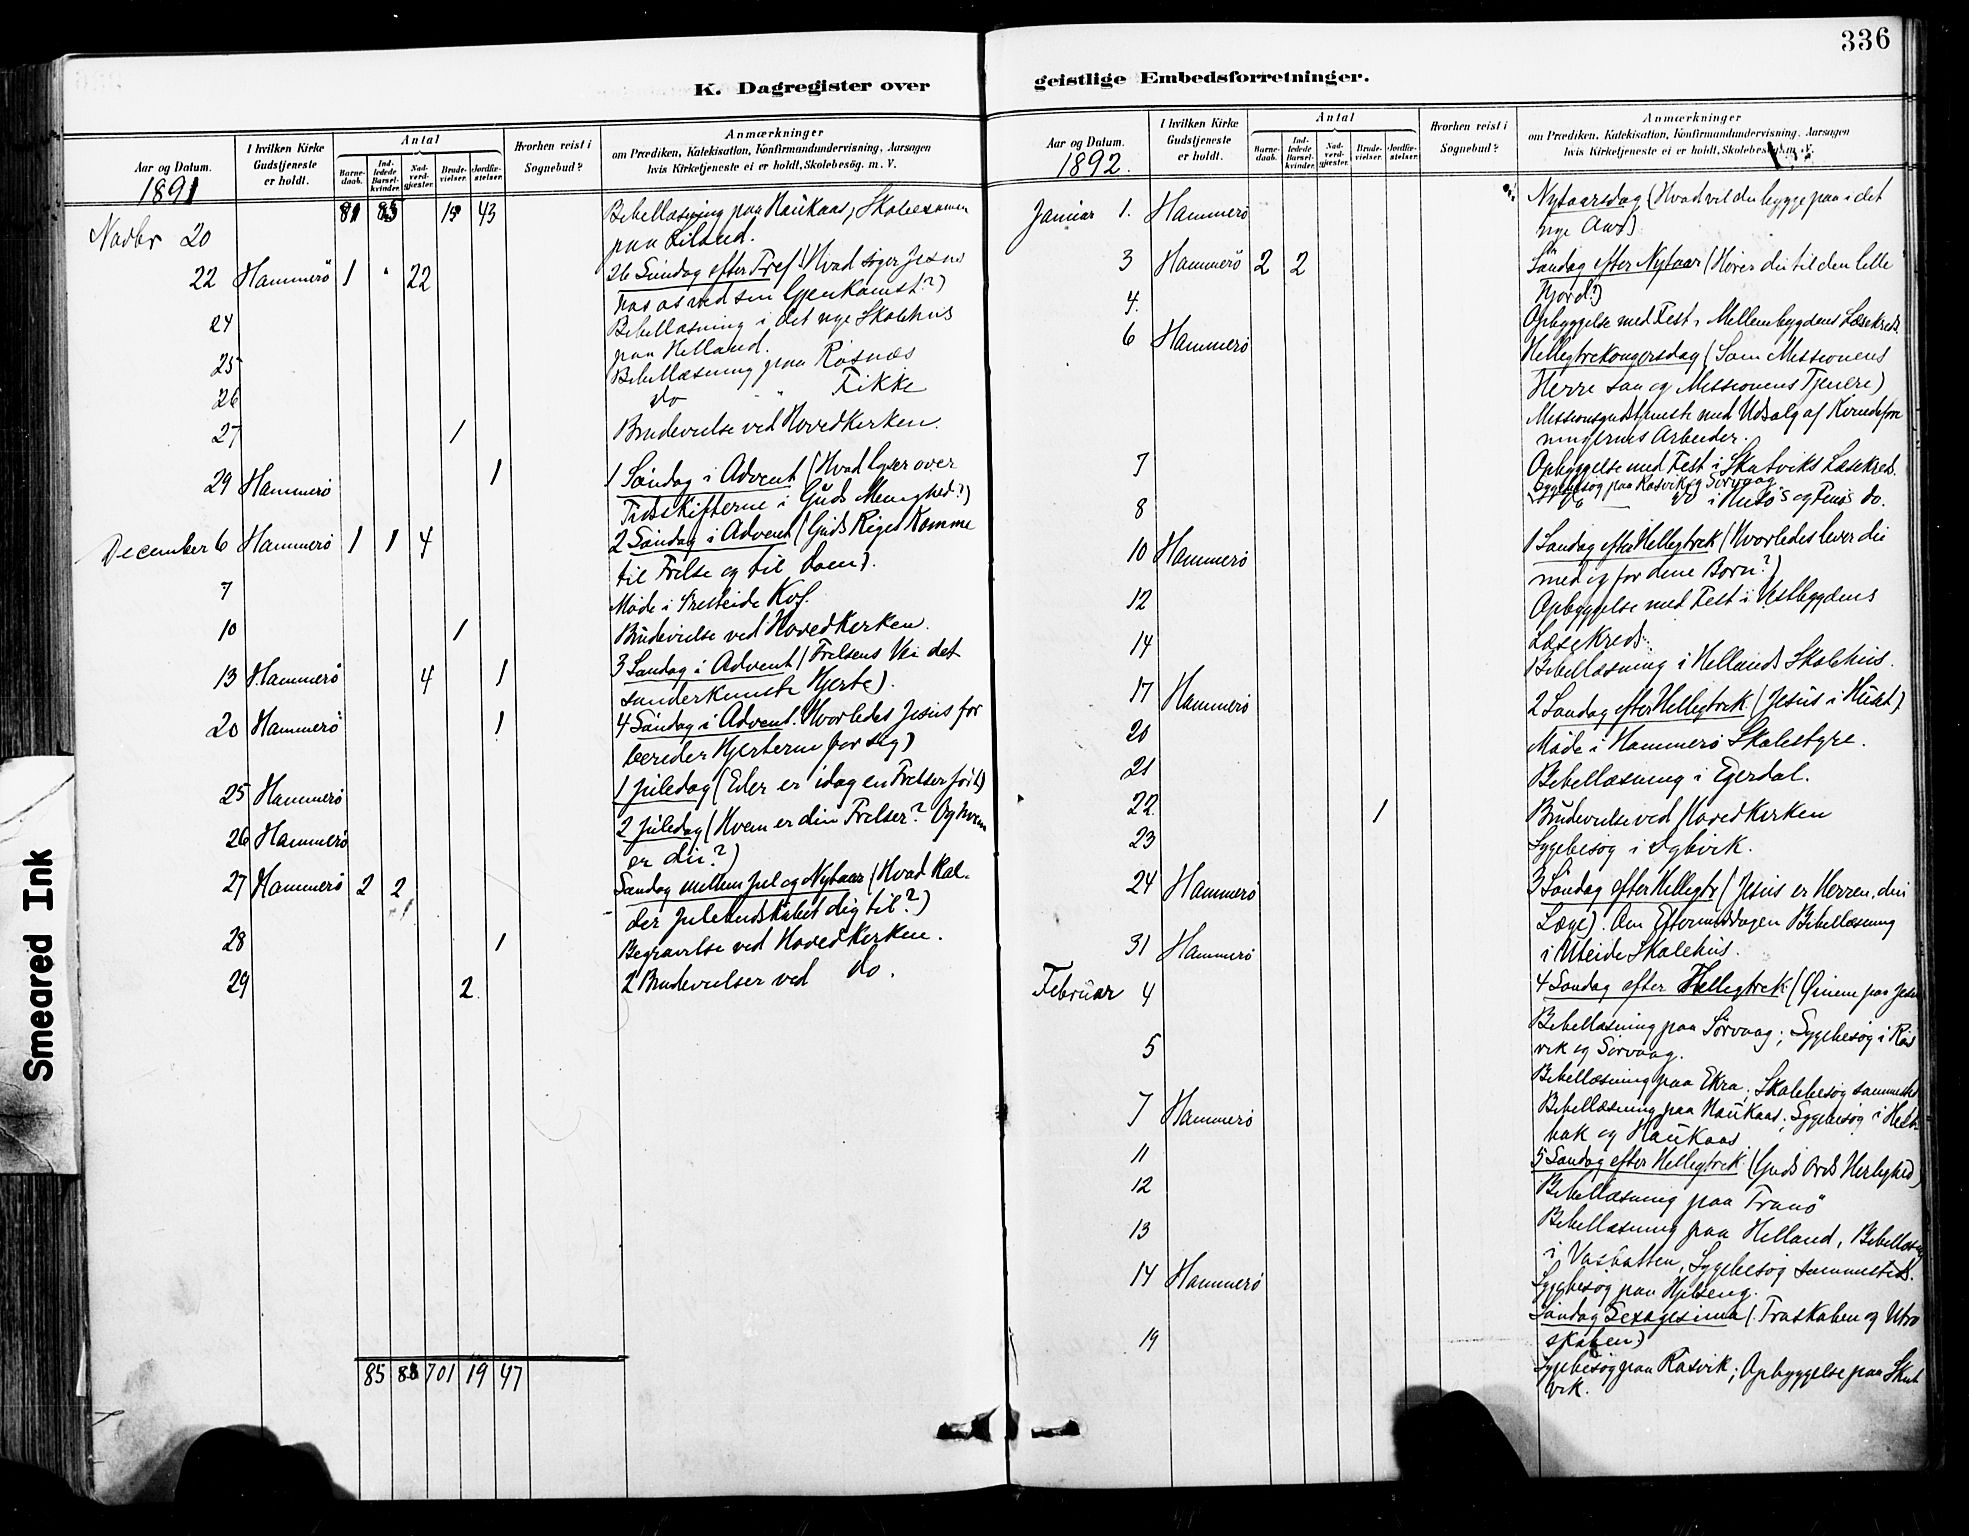 336
K. Dagregister over
Aar og Datum.
1891
I hvilken Kirke
Gudstjeneste
er holdt.
Antal
Barne-
daab.
Ind-
ledede
Barsel-
kvinder.
Nad-
verd-
gjester.
Brude-
vielser.
Jordfæ-
stelser.
Hvorhen reist i
Sognebud?
Anmærkninger
om Prædiken, Katekisation, Konfirmandundervisning, Aarsagen
hvis Kirketjeneste ei er holdt, Skolebesøg. m. V.
81 85 15 43 Bibellæsning paa Haukaas, Skoleexamen
Novbr 20 paa
22 Hammerø 1 22 26 Søndag efter Tref. (Hvad siger Jesus
os ved sin Gjenkomst?)
24 Bibellæsning i det nye Skolehus
paa Helland.
25 Bibellæsning paa Rosnæs
26 do " Fikke
27 1 Brudevielse ved Hovedkirken.
29 Hammerø 1 1 Søndag i Advent (Hvad lyser over
Tidsskifterne i Guds Menighed?)
December 6 Hammerø 1 1 4 2 Søndag i Advent (Guds Riges Komme
til Frelse og til Dom).
7 Møde i Presteide Kof.
10 1 Brudevielse ved Hovedkirken.
13 Hammerø 4 1 3 Søndag i Advent (Frelsens Vei det
sønderknuste Hjerte).
20 Hammerø 1 4 Søndag i Advent. Hvorledes Jesus for
bereder Hjerterne for sig)
25 Hammerø 1 Juledag (Eder er idag en Frelser født)
26 Hammerø 2 Juledag (Hvem er din Frelser? Og hvem
er du?)
27 Hammerø 2 2 Søndag mellem Jul og Nytaar (Hvad kal-
der Julebudskabet dig til?)
28 1 Begravelse ved Hovedkirken.
29 2 2 Brudevielser ved do.
85 88 701 19 47
geistlige Embedsforretninger.
Aar og Datum.
1892.
I hvilken Kirke
Gudstjeneste
er holdt.
Antal
Barne-
daab.
Ind-
ledede
Barsel-
kvinder.
Nad-
verd-
gjester.
Brude-
vielser.
Jordfæ-
stelser.
Hvorhen reist i
Sognebud?
Anmærkninger
om Prædiken, Katekisation, Konfirmandundervisning, Aarsagen
hvis Kirketjeneste ei er holdt, Skolebesøg. m. V.
Januar 1. Hammerø Nytaarsdag (Hvad vil du bygge paa i det
nye Aar?)
3 Hammerø 2 2 Søndag efter Nytaar (Hører du til den lille
Hjord?)
4. Opbyggelse med Fest i Mellembygdens Læsekreds.
6 Hammerø Helligtrekongersdag (Som Missionens
Herre saa og Missionens Tjenere)
Missionsgudstjeneste med Udsalg af Kvindefore
ningernes Arbeider.
7 Opbyggelse med Fest i Skutviks Læsekreds.
Sygebesøg paa Rosvik og Sørvaag
8 do i og do.
10 Hammerø 1 Søndag efter Helligtrek (Hvorledes lever du
med og for dine Børn?)
12 Opbyggelse med Fest i Vestbygdens
Læsekreds.
14 Bibellæsning i Hellands Skolehus.
17 Hammerø 2 Søndag efter Helligtrek. (Jesus i Huset)
20 Møde i Hammerø Skolestyre.
21 Bibellæsning i Egerdal.
22 1 Brudevielse ved Hovedkirken
23 Sygebesøg i
24 Hammerø 3 Søndag efter Helligtr (Jesus er Herren, din
Læge). Om Eftermiddagen Bibellæsning
i Uteide Skolehus.
31 Hammerø 4 Søndag efter Helligtrek (Øinene paa Jesus
Februar 4 Bibellæsning paa Sørvaag; Sygebesøg i Ros
vik og Sørvaag.
5 Bibellæsning paa Ekra; Skolebesøg sammesteds
Bibellæsning paa Haukaas; Sygebesøg i
og Haukaas
7 Hammerø 5 Søndag efter Helligtrek (Guds Ords Herlighed)
11 Bibellæsning paa Tranø
12 Bibellæsning paa Helland, Bibellæsn
i Sygebesøg sammesteds.
13 Sygebesøg paa
14 Hammerø Søndag Sexagesima (Troskaben og Utro
skaben)
19 Sygebesøg paa Rosvik; Opbyggelse paa Skut
vik.
Smeared Ink